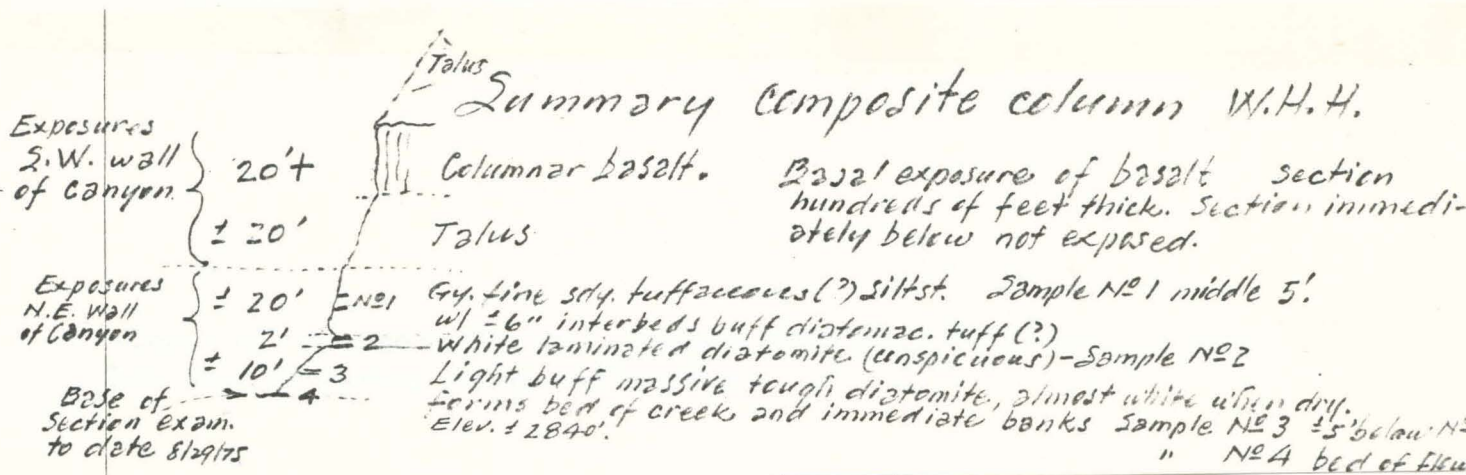 Talus
Summary composite column W.H.H.
Exposures
S.W. wall
of Canyon
20'+
Columnar basalt.
Basal exposure of basalt section
hundreds of feet thick. Section immedi-
ately below not exposed.
± 20'
Talus
Exposures
N.E. wall
of Canyon
± 20'
Nº1
Gy. fine sdy. tuffaceous(?) siltst. Sample Nº 1 middle 5'.
w/ ±6" interbeds buff diatomac. tuff(?)
2'
2
White laminated diatomite (conspicuous) - Sample Nº2
± 10'
3
Light buff massive tough diatomite, almost white when dry.
forms bed of creek and immediate banks Sample Nº 3 ±5' below Nº
4
Elev. ± 2840'.
" Nº4 bed of
Base of
Section exam.
to date 8/29/75